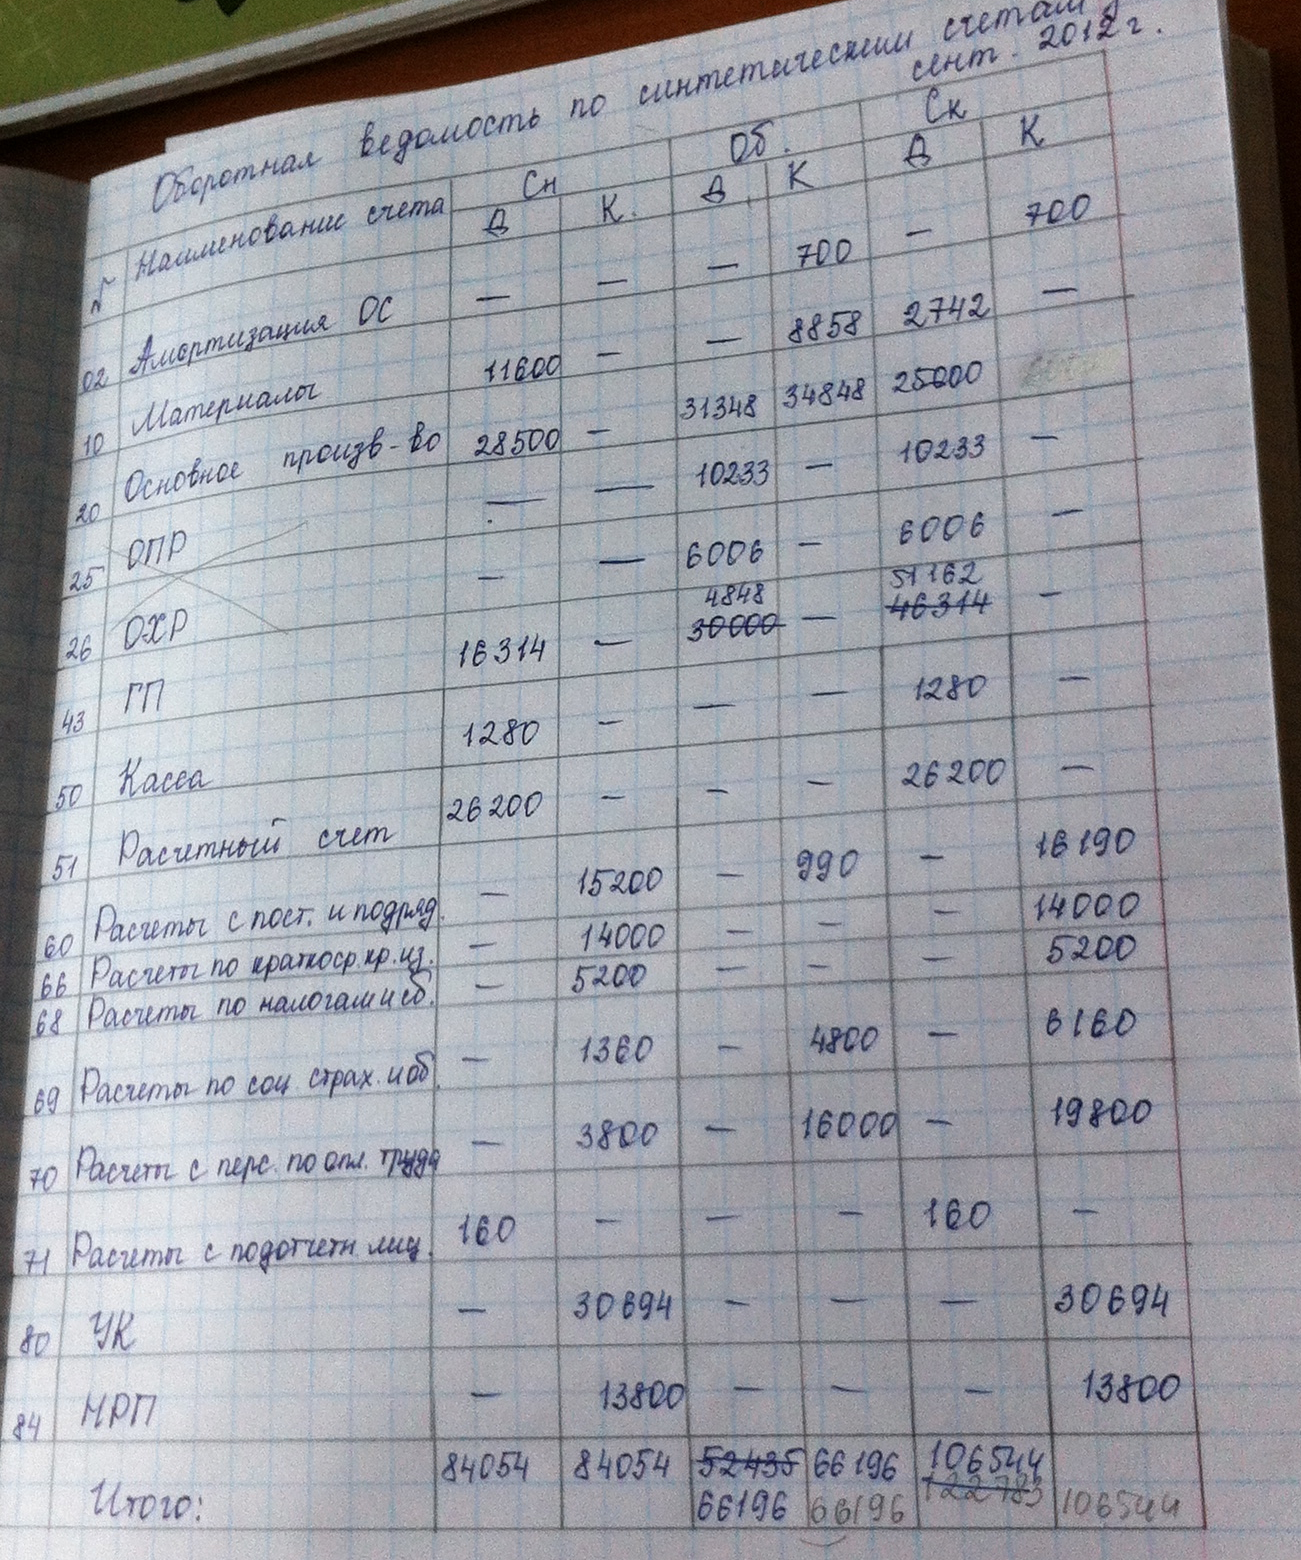 Оборотная ведомость по синтетическим счетам
сент. 2012 г.
№ Наименование счета Сн Об. Ск
Д К. Д К Д К
02 Амортизация ОС — — — 700 — 700
10 Материалы 11600 — — 8858 2742 —
20 Основное произв-во 28500 — 31348 34848 25000
25 ОПР — — 10233 — 10233 —
26 ОХР — — 6006 — 6006 —
4848 51162
43 ГП 16314 — 30000 — 46314 —
50 Касса 1280 — — — 1280 —
51 Расчетный счет 26200 — — — 26200 —
60 Расчеты с пост. и подряд. — 15200 — 990 — 16190
66 Расчеты по краткоср.кр.из. — 14000 — — — 14000
68 Расчеты по налогам и сб. — 5200 — — — 5200
69 Расчеты по соц. страх. и об. — 1360 — 4800 — 6160
70 Расчеты с перс. по опл. труда — 3800 — 16000 — 19800
71 Расчеты с подотчетн. лиц. 160 — — — 160 —
80 УК — 30694 — — — 30694
84 НРП — 13800 — — — 13800
Итого: 84054 84054 52435 66196 106544
66196 66196 122783 106544